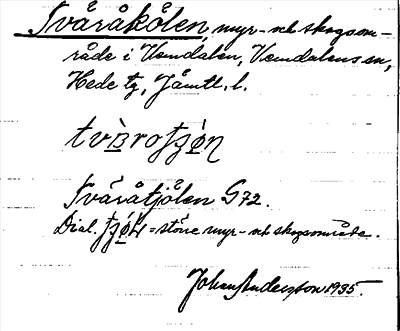 Tvåråkölen, myr- och skogsom-
råde i Vemdalen, Vemdalens sn,
Hede tg, Jämtl. l.
Tvåråtjölen G72.
Dial. = större myr- och skogsområde.
Johan Anderzson 1935.